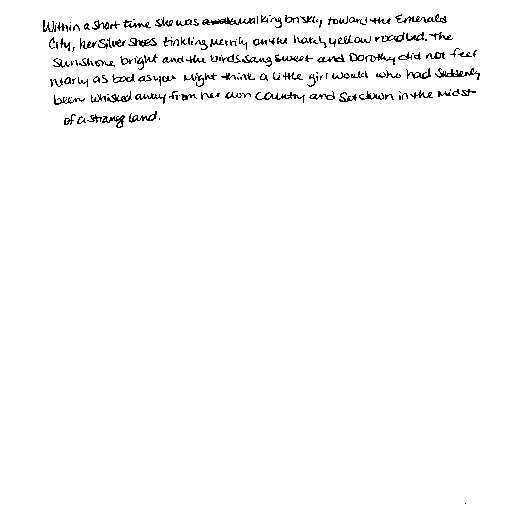 Within a short time she was walking briskly toward the Emerald
City, her Silver Shoes tinkling merrily on the hard, yellow roadbed. The
sun shone bright and the birds sang sweet and Dorothy did not feel
nearly as bad as you might think a little girl would who had suddenly
been whisked away from her own country and set down in the midst
of a strange land.